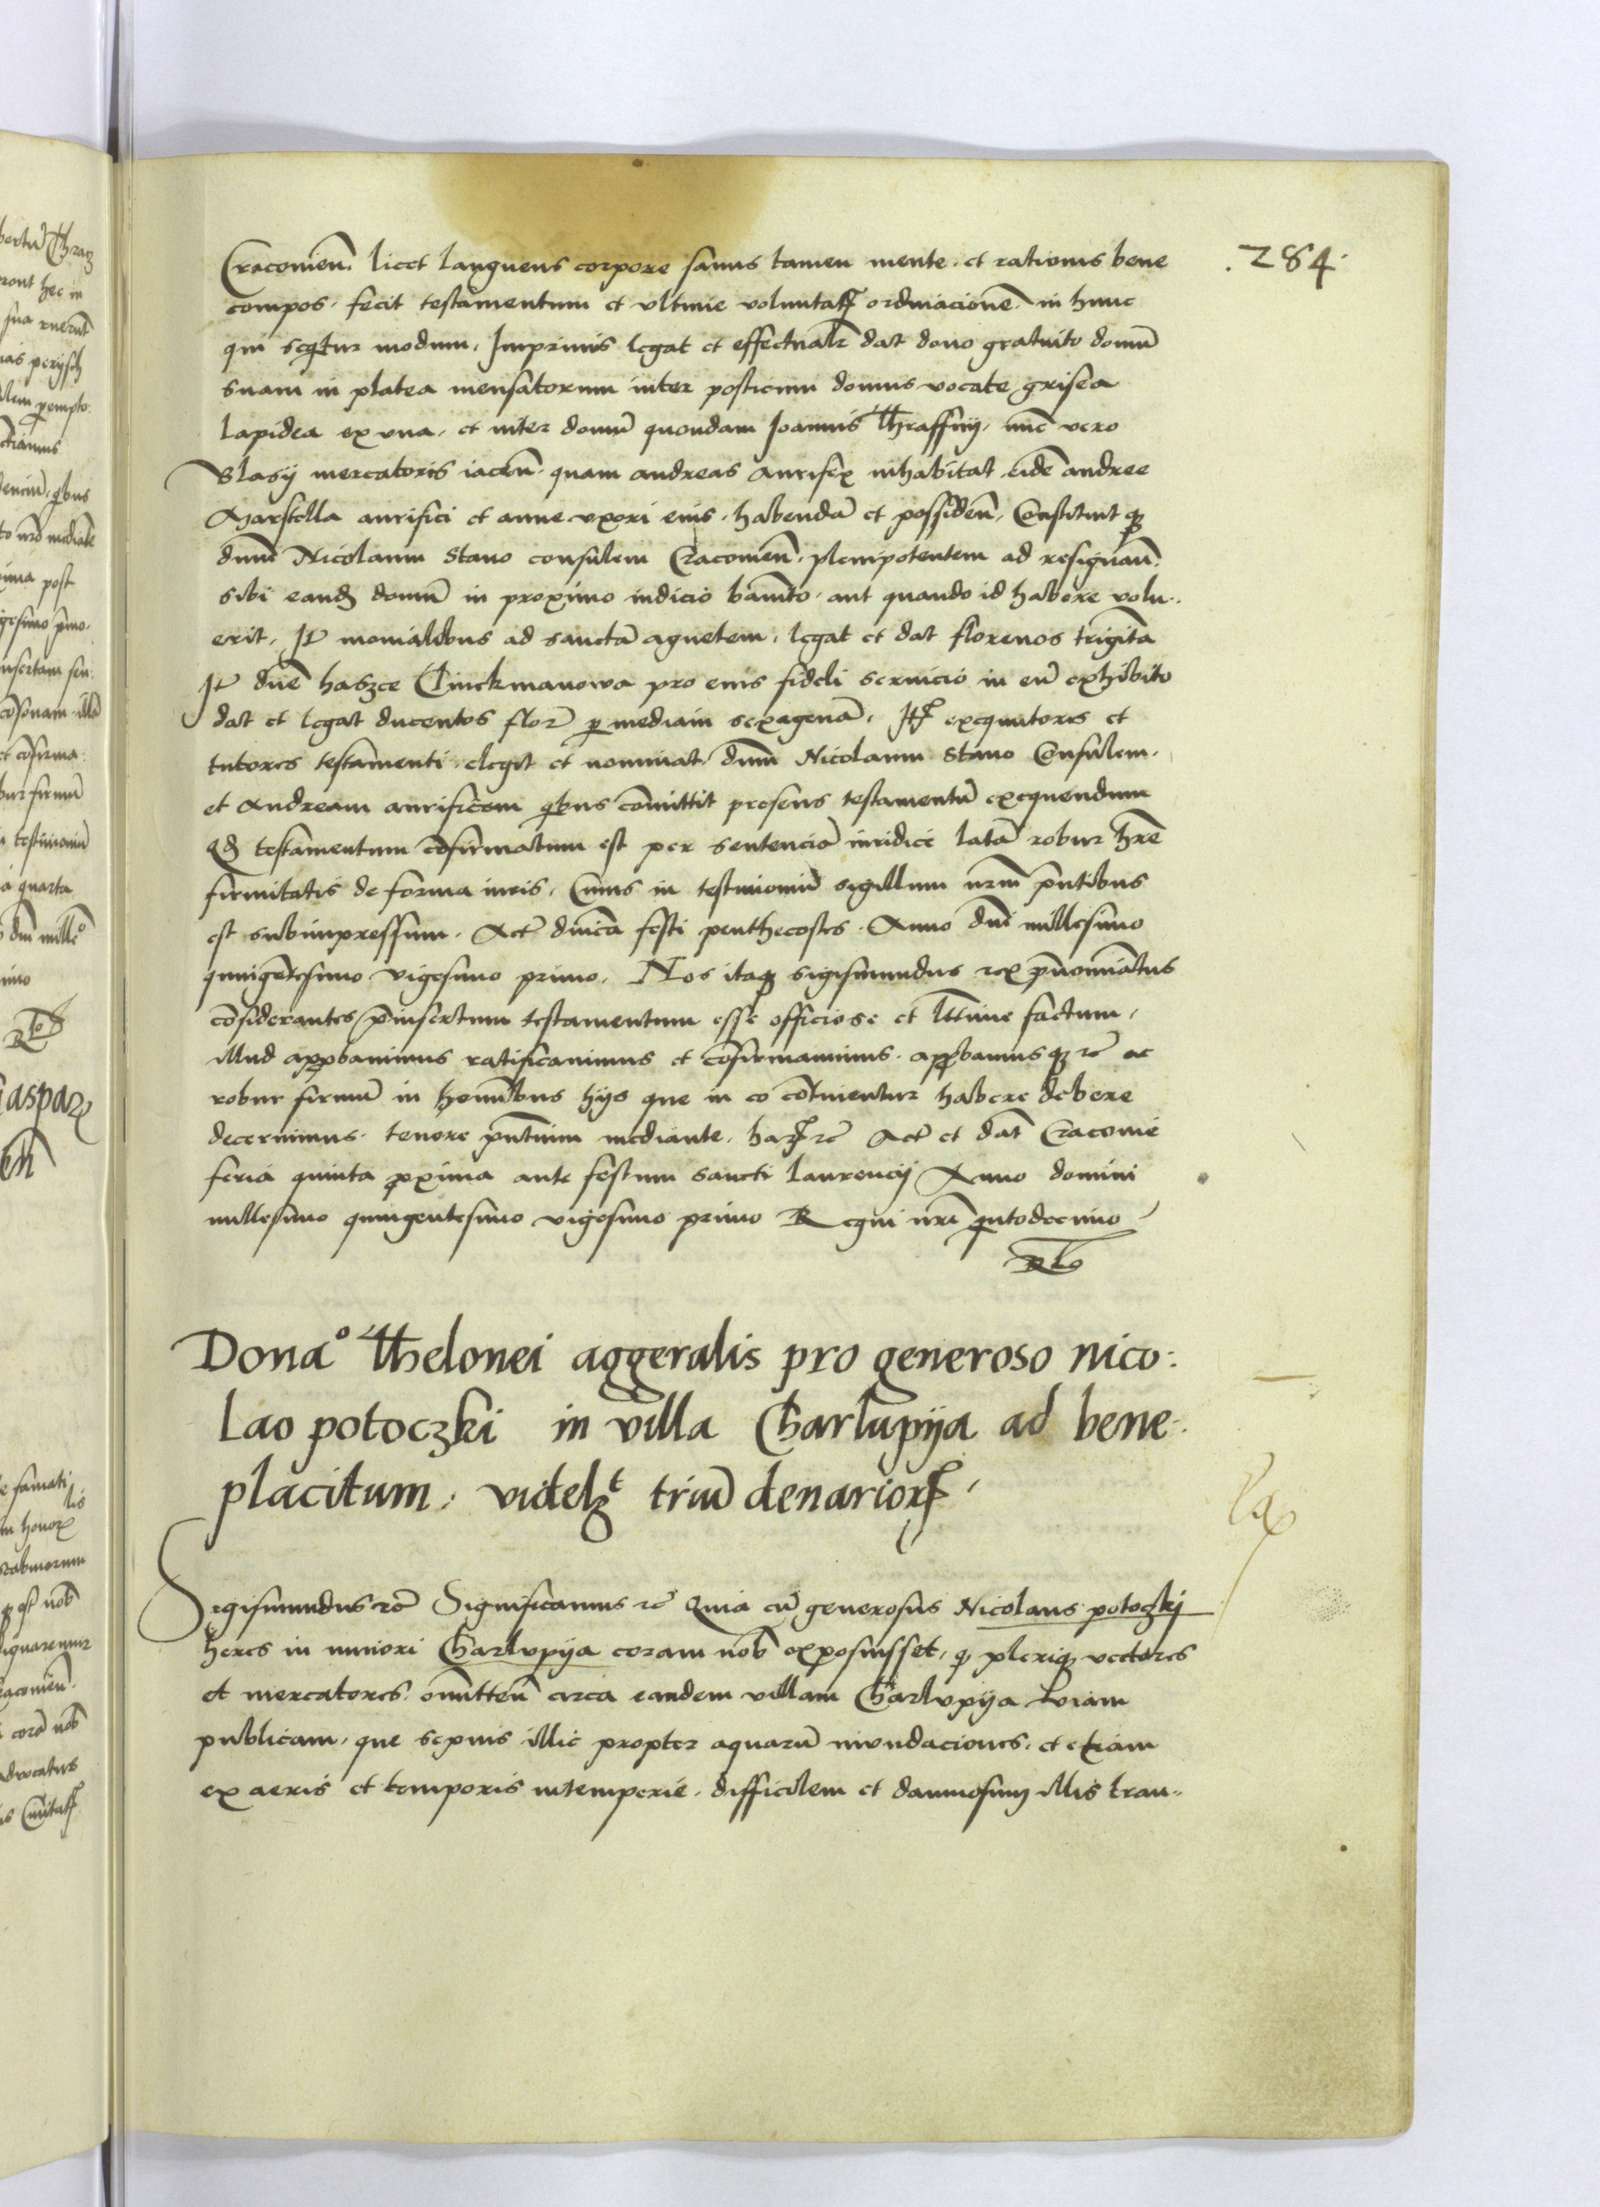 .284.
Craconien̄. licet languens corpore sanus tamen mente. et rationis bene
compos. fecit testamentum et ultime voluntatꝭ ordinacionē. in hunc
qui seqtur modum. Imprimis legat et effectualr̄ dat dono gratuito domū
suam in platea mensatorum inter posticum domus vocate grisea
lapidea ex una. et inter domū quondam Joannis Thraffinij. nūc vero
Blasij mercatoris iacen̄. quam andreas aurifex inhabitat eidē andree
Marstella aurifici et anne uxori eius. habendā et possiden̄. Constituit qꝫ
dnm̄ Nicolaum Stano consulem Craconien̄. plenipotentem ad resignan̄.
sibi eandꝫ domū in proximo iudicio bannito. aut quando id habere volu..
erit. Itꝭ monialibus ad sanctā agnetem. legat et dat florenos triginta
Itꝭ dnē haszce Cinckmanowa pro eius fideli servicio in eū exhibito
dat et legat ducentos florꝭ ꝑ mediam sexagenā. Itꝭ exequutores et
tutores testamenti. elegit et nominat. dnm̄ Nicolaum Stano Consulem.
et Andream aurificem qbus cōmittit presens testamentū exequendum
Qdꝫ testamentum cōfirmatum est per sentenciā iuridice latā robur hr̄e
firmitatis de forma iuris. Cuius in testimoniū sigillum nrm̄ pn̄tibus
est subimpressum. Actꝭ dnica festi penthecostes. Anno dnī millesimo
quingentesimo vigesimo primo. Nos itaqꝫ sigismundus rex pn̄ominatus
cōsiderantes p̄insertum testamentum esse officiose et lttime factum,
illud approbavimus ratificavimus et cōfirmavimus. approbamusqꝫ rc̄ ac
robur firmū in hom̄ibus hijs que in eo cōtinentur habere debere
decernimus. tenore pn̄tium mediante. harꝭ rc̄ Actꝭ et datꝭ Craconie
feria quinta proxima ante festum sancti laurencij Anno domini
millesimo quingentesimo vigesimo primo Regni nrī quintodecimo
Dona° Thelonei aggeralis pro generoso nico:
lao potoczki in villa Charlupija ad bene.
placitum. videlꝫt triū denariorꝭ.
Sigismundus rc̄ Significamus rc̄ Quia cū generosus Nicolaus potoczki
heres in minori Charlupija coram nob̄ exposuisset. qꝫ pleriqꝫ vectores
et mercatores. omitten̄ circa eandem villam Charlupija viam
publicam. que sepius illic propter aquarū inundaciones. et etiam
ex aeris et temporis intemperie. difficilem et damnosam illis tran..